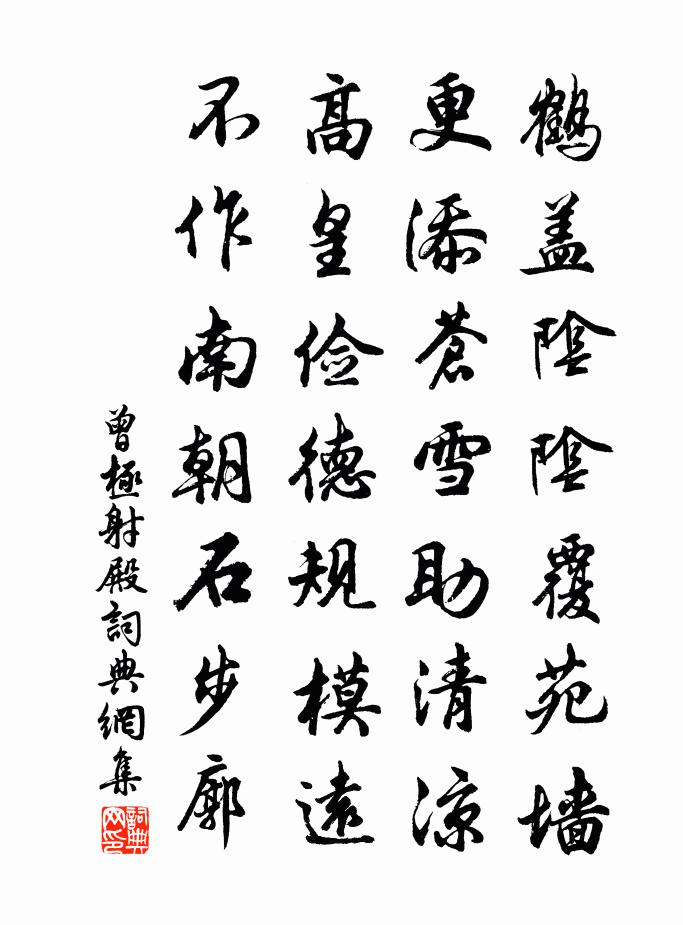 鶴盖陰陰覆苑墙
更添蒼雪助清涼
高皇儉德規模遠
不作南朝石步廓
曾極射殿詞典網集
詞典网印